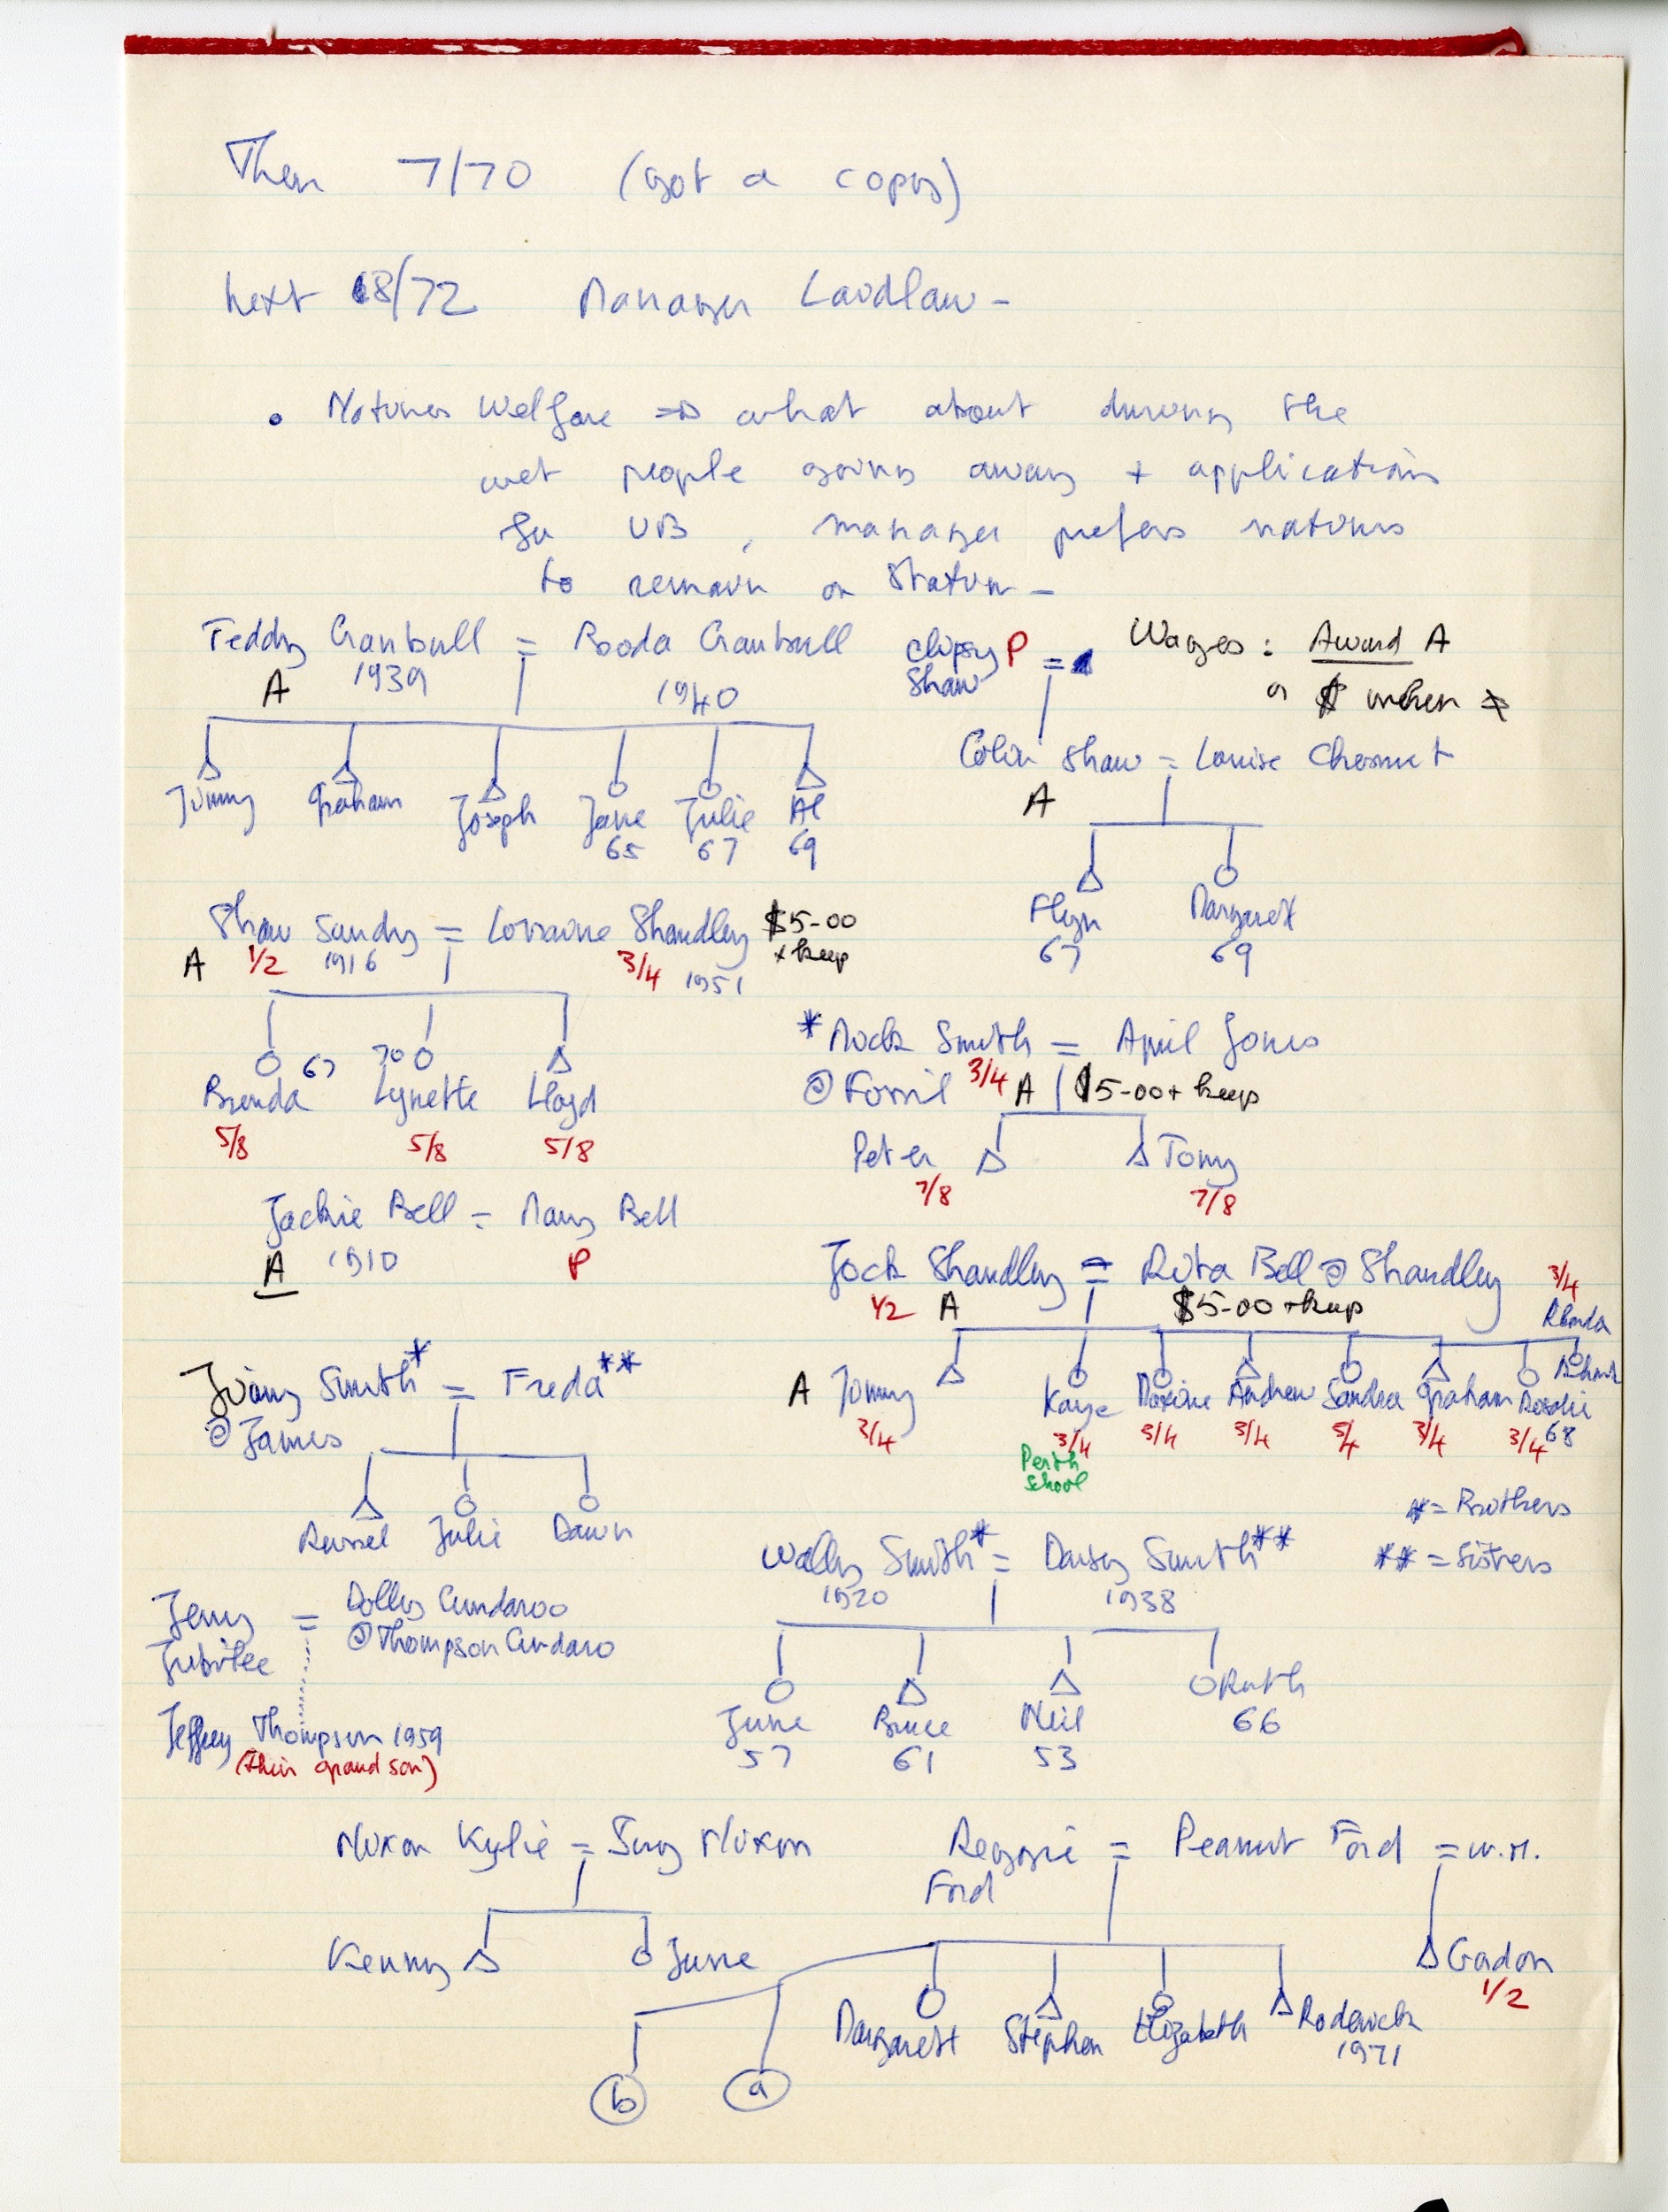 Then 7/70 (got a copy)
Next 8/72 Manager Laidlaw -
• Natives Welfare ⇒ what about during the
wet people going away + applications
for UB, manager prefers natives
to remain on Station -
Teddy = Rooda
A 1939 1940
Jimmy Graham Joseph Jane Julie Al
65 67 69
Shaw P =
Wages: Award A
or $ when ≠
Colin Shaw = Louise
A
Flyn Margaret
67 69
Shaw Sandy = Lorraine Shandley $5-00
+ keep
A 1/2 1916 3/4 1951
67 70
Brenda Lynette Lloyd
5/8 5/8 5/8
* Mick Smith = April Jones
@ Fossil 3/4 A $5-00 + keep
Peter Tony
7/8 7/8
Jackie Bell = Mary Bell
A 1910 P
Jock Shandley = Rita Bell @ Shandley
1/2 A $5-00 + keep
3/4
Rhonda
A Tommy Kaye Maxine Andrew Sandra Graham Rosalie
3/4 3/4 3/4 3/4 3/4 3/4 3/4 68
Perth
School
Jimmy Smith* = Freda**
@ James
Russel Julie Dawn
* = Brothers
** = Sisters
Wally Smith* = Daisy Smith**
1920 1938
June Bruce Neil Ruth
57 61 53 66
Jerry = Dolly Cundaroo
Jubilee @ Thompson Cundaro
Jeffrey Thompson 1959
(their grandson)
Nixon Kylie = Nixon
Kenny June
Reggie = Peanut Ford = W.M.
Ford
Margaret Stephen Elizabeth Roderick
1971
Gadon
1/2
b a